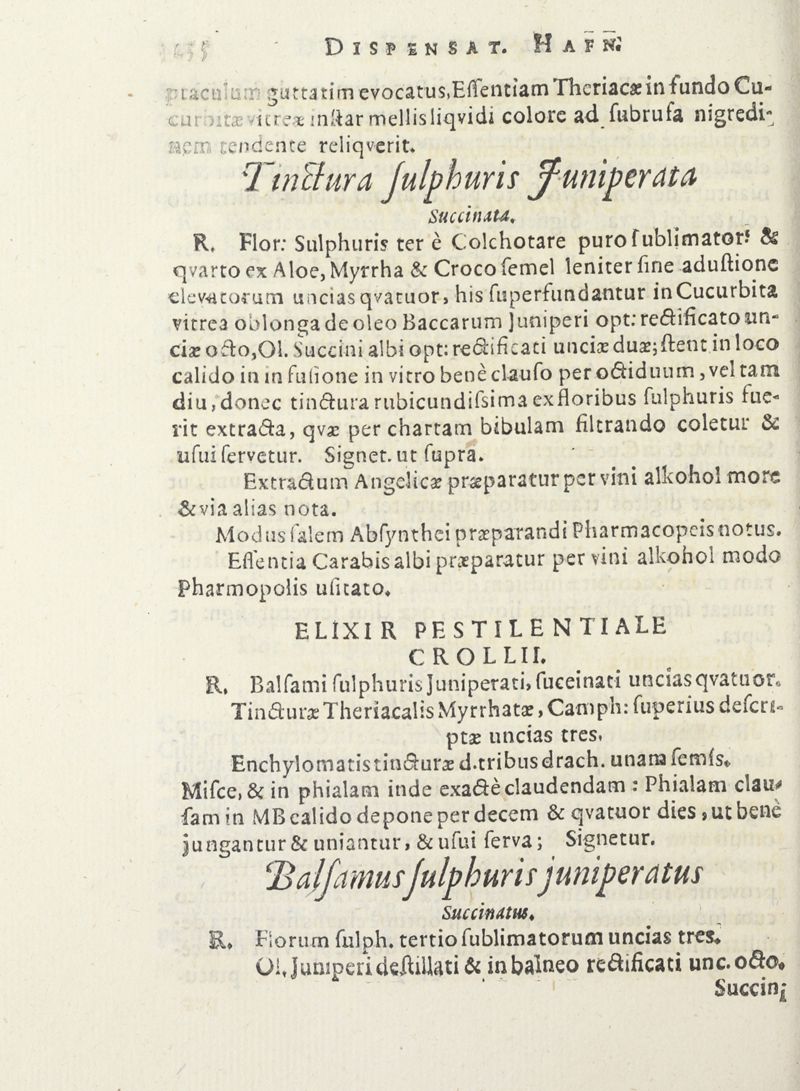 DISPENSAT. HAFN:
guttatim evocatus, Eſſentiam Theriacæ in fundo Cu-
vitreæ inſtar mellis liqvidi colore ad ſubrufa nigredi-
tendente reliqverit.
Tinctura ſulphuris Juniperata
Succinata.
R. Flor: Sulphuris ter è Colchotare puro ſublimator: &
qvarto ex Aloe, Myrrha & Croco ſemel leniter ſine aduſtione
elevatorum uncias qvatuor, his ſuperfundantur in Cucurbita
vitrea oblonga de oleo Baccarum Juniperi opt: rectificato un-
ciæ octo, Ol. Succini albi opt: rectificati unciæ duæ; ſtent in loco
calido in in fuſione in vitro benè clauſo per octiduum, vel tam
diu, donec tinctura rubicundiſsima ex floribus ſulphuris fue-
rit extracta, qvæ per chartam bibulam filtrando coletur &
uſui ſervetur. Signet. ut ſupra.
Extractum Angelicæ præparatur per vini alkohol more
& via alias nota.
Modus ſalem Abſynthei præparandi Pharmacopeis notus.
Eſſentia Carabis albi præparatur per vini alkohol modo
Pharmopolis uſitato.
ELIXIR PESTILENTIALE
CROLLII.
R. Balſami ſulphuris Juniperati, ſuceinati uncias qvatuor.
Tincturæ Theriacalis Myrrhatæ, Camph: ſuperius deſcri-
ptæ uncias tres.
Enchylomatis tincturæ d. tribus drach. unam ſemis.
Miſce, & in phialam inde exactè claudendam : Phialam clau-
ſam in MB calido depone per decem & qvatuor dies, ut benè
jungantur & uniantur, & uſui ſerva; Signetur.
Balſamus ſulphuris juniperatus
Succinatus.
R. Florum ſulph. tertio ſublimatorum uncias tres.
Ol. Juniperi deſtillati & in balneo rectificati unc. octo.
Succini